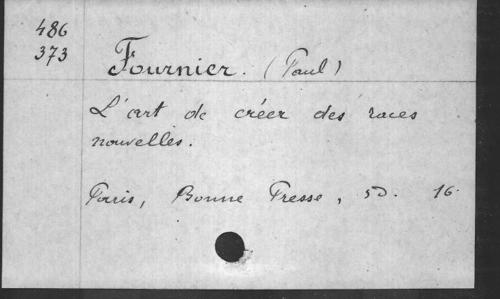 486
373
Fournier. (Paul)
L'art de créer des races
nouvelles.
Paris, Bonne Presse, sd. 16.